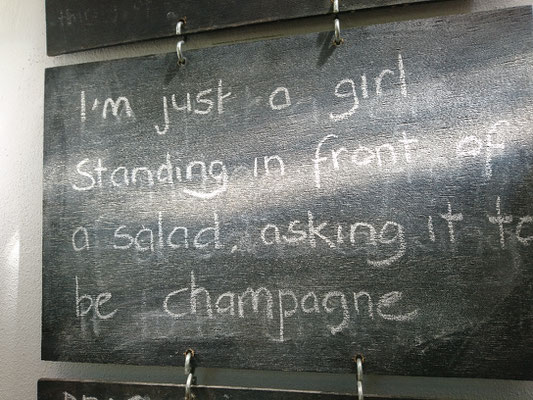 I'm just a girl
Standing in front of
a salad, asking it to
be champagne